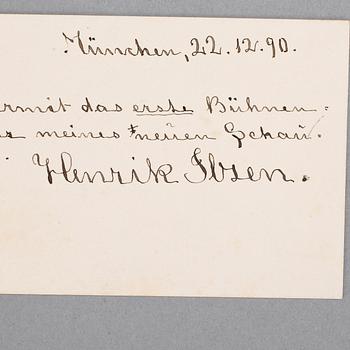 München, 22. 12. 90.
ermit das erste Bühnen-
meines neuen Schau-
Henrik Ibsen.